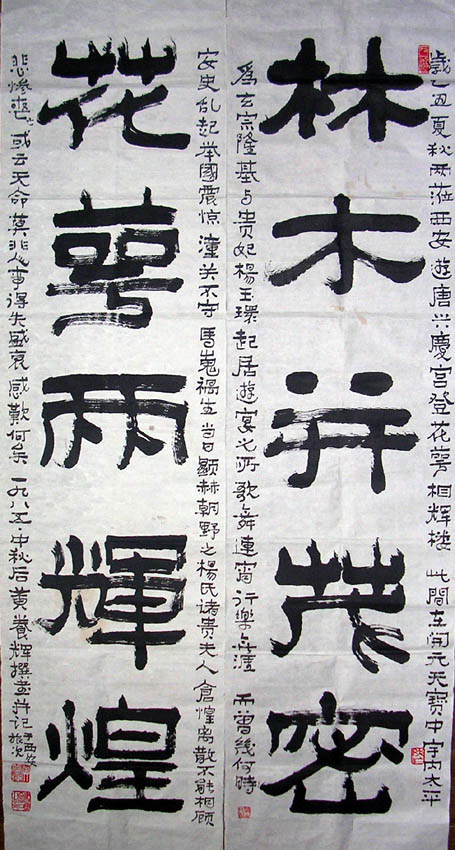 歲乙丑夏秋两蒞西安遊唐兴慶宫登花萼相辉楼 此間在開元天寶中宇内太平
林木并茂密
為玄宗隆基与贵妃楊玉環起居遊宴之所歌舞連宵行樂無涯 而曾幾何時
安史乱起举國震惊潼关不守馬嵬禍生当日顯赫朝野之楊氏诸贵夫人倉煌离散不能相顾
花萼兩輝煌
悲惨喪亡或云天命莫非人事得失盛衰感歎何 一九八五·中秋后黄養辉撰書并记于西安旅次